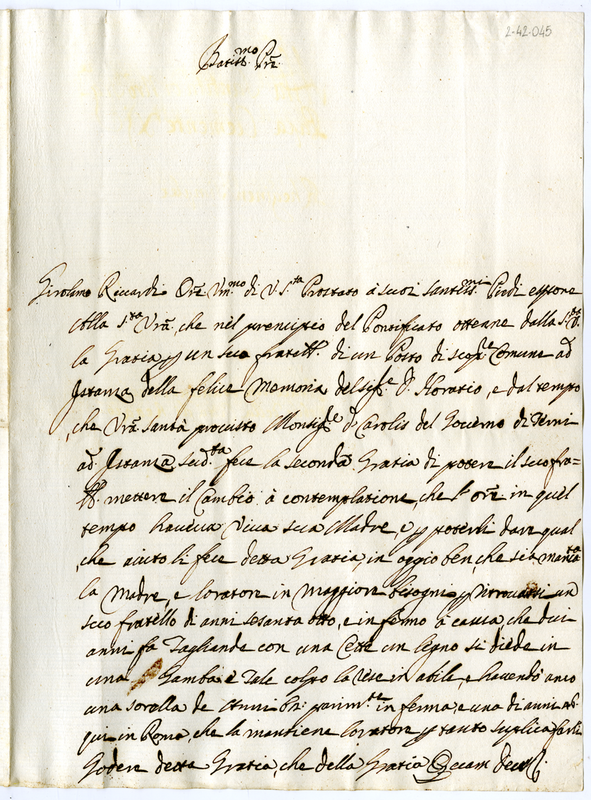 2-42-045
Beatis.mo Pre
Girolamo Riccardi Ore Um.mo di V. S.ta Prostato a suoi santiss.mi Piedi espone
Alla S.ta Vra, che nel prencipio del Pontificato ottenne dalla S.ta V.
la Gratia p un suo fratello di un Posto di Comune ad
Istanza della felice Memoria del Sig.re D. Horatio, e dal tempo
che Vra Santà provisto Monsig.re de Carolis del Governo di Terni
ad Istanza fece la seconda Gratia di potere il suo fra=
tello mettere il Cambio à contemplatione, che l'ore in quel
tempo haveva viva sua Madre, e p poterli dare qual
che aiuto li fece detta Gratia, in oggio ben che sia
la Madre, e l'oratore in maggiore bisogni p ritrovarsi un
suo fratello di anni sesanta otto, e infermo à causa, che dui
anni fa Tagliando con una Cetta un legno si diede in
una Gamba è Tale colpo la rese in abile, e havendo anco
una sorella de Anni parim.te inferma, e una di anni
qui in Roma, che la mantiene l'oratore p tanto suplica farli
Godere detta Gratia, che della Gratia Quam Deus.